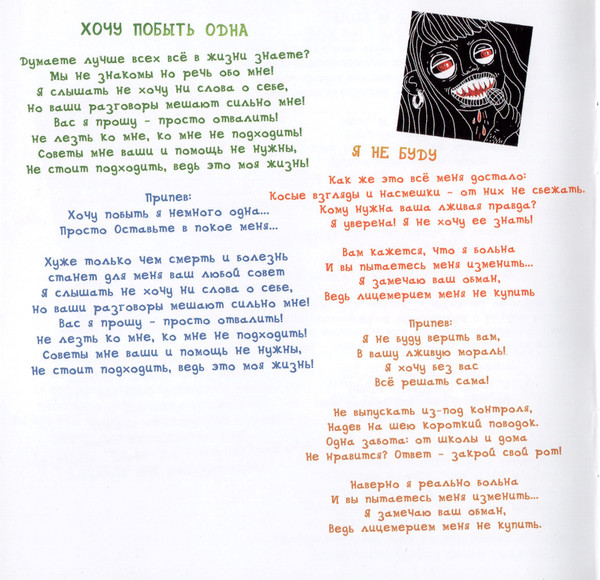 ХОЧУ ПОБЫТЬ ОДНА
Думаете лучше всех всё в жизни знаете?
Мы не знакомы но речь обо мне!
Я слышать не хочу ни слова о себе,
Но ваши разговоры мешают сильно мне!
Вас я прошу - просто отвалить!
Не лезть ко мне, ко мне не подходить!
Советы мне ваши и помощь не нужны,
Не стоит подходить, ведь это моя жизнь!
Припев:
Хочу побыть я немного одна...
Просто Оставьте в покое меня...
Хуже только чем смерть и болезнь
станет для меня ваш любой совет
Я слышать не хочу ни слова о себе,
Но ваши разговоры мешают сильно мне!
Вас я прошу - просто отвалить!
Не лезть ко мне, ко мне не подходить!
Советы мне ваши и помощь не нужны,
Не стоит подходить, ведь это моя жизнь!
Я НЕ БУДУ
Как же это всё меня достало:
Косые взгляды и насмешки - от них не сбежать.
Кому нужна ваша лживая правда?
Я уверена! Я не хочу ее знать!
Вам кажется, что я больна
И вы пытаетесь меня изменить...
Я замечаю ваш обман,
Ведь лицемерием меня не купить
Припев:
Я не буду верить вам,
В вашу лживую мораль!
Я хочу без вас
Всё решать сама!
Не выпускать из-под контроля,
Надев на шею короткий поводок.
Одна забота: от школы и дома
Не нравится? Ответ - закрой свой рот!
Наверно я реально больна
И вы пытаетесь меня изменить...
Я замечаю ваш обман,
Ведь лицемерием меня не купить.